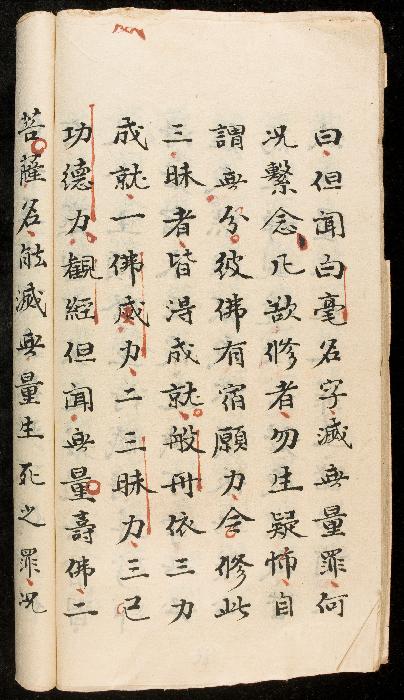 曰但闻白毫名字滅無量罪何
况繫念凡欲修者勿生疑怖自
謂無分彼佛有宿願力令修此
三昧者皆得成就般舟依三力
成就一佛威力二三昧力三己
功德力觀經但聞無量壽佛二
菩薩名能滅無量生死之罪况